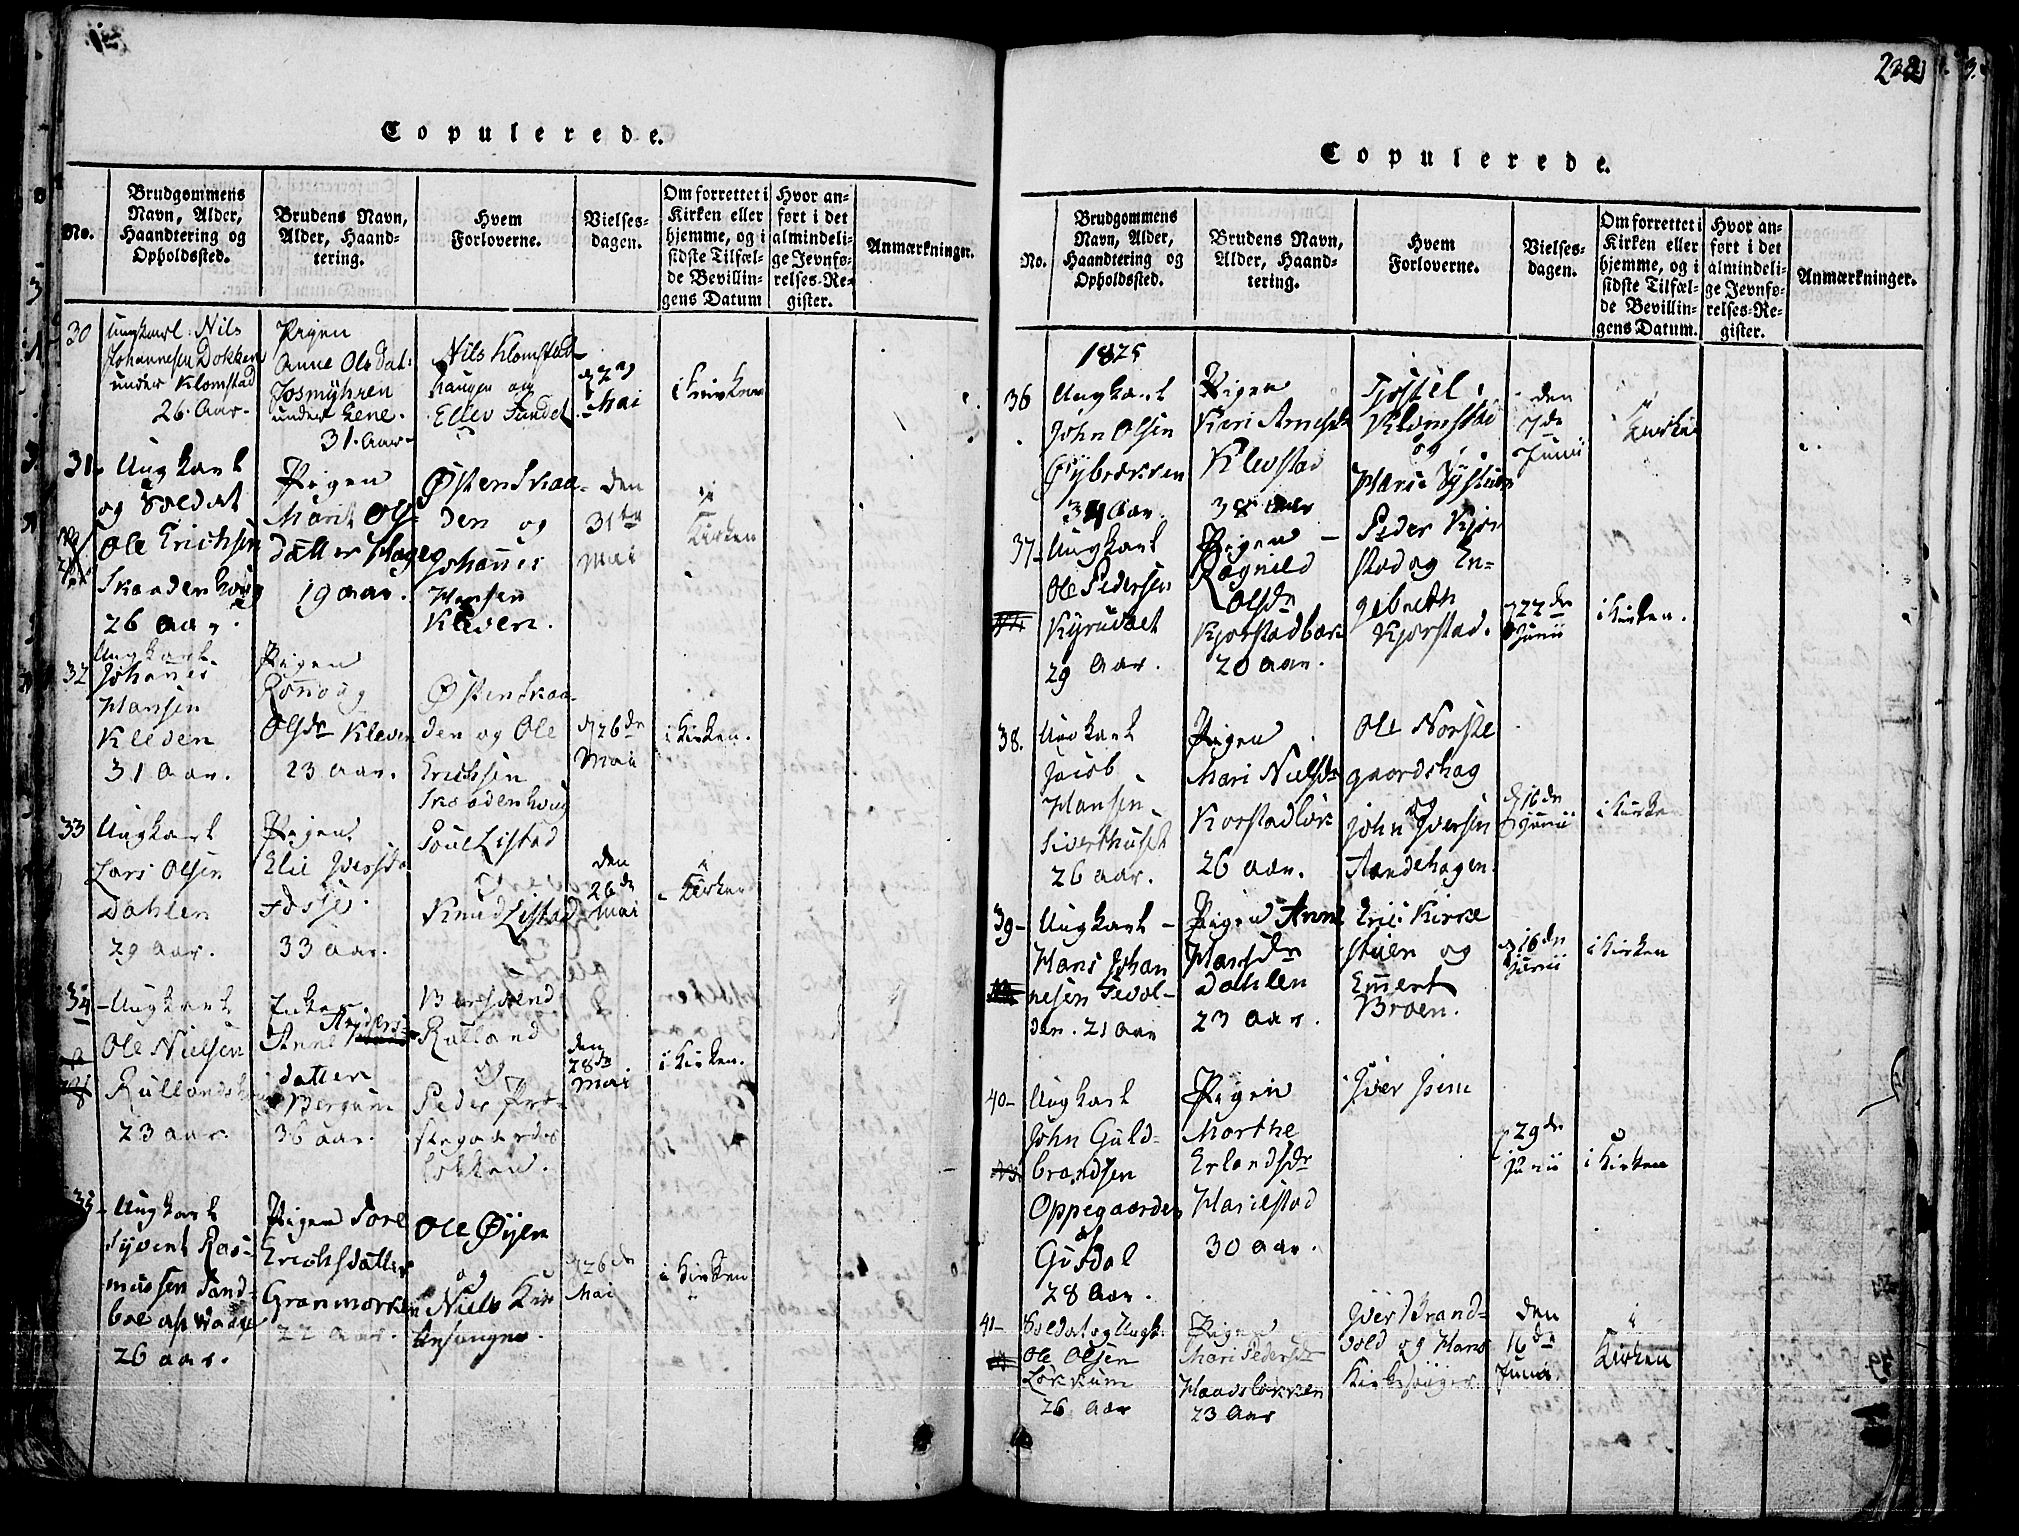 Copulerede.
No.
Brudgommens Navn, Alder, Haandtering og Opholdssted.
Brudens Navn, Alder, Haandtering.
Hvem Forloverne.
Vielsesdagen.
Om forrettet i Kirken eller hjemme, og i sidste Tilfælde Bevillingens Datum
Hvor anført i det almindelige Jevnførelses-Register.
Anmærkninger.
30
Ungkarl Nils
Johannesen Dokken
under Klomstad
26 Aar
Pigen
Anne Olsdat:
Josmyhren
under Lene.
31 Aar
Nils Klomstad
haugen og
Ellev Sundet
d 2
Mai
i Kirken
31.
Ungkarl
og Soldat
Ole Erichsen
Skaadenhoug
26 Aar.
Pigen
Marit Ols
datter Hage
19 aar.
Østen Skaa
den og
Johannes
Hansen
Kleven.
den
31te
Mai
i
Kirken
32
Ungkarl
Johannes
Hansen
Kleven
31 Aar.
Pigen
Ronnoug
Olsdr Kleven
23 aar.
Østen Skaa
den og Ole
Erichsen
Skaadenhoug
d 26de
Mai
i Kirken.
33
Ungkarl
Lars Olsen
Dahlen
29 aar.
Pigen
Elie Iversdr
Fosse.
33 aar.
Poul Listad
og
Knud Listad
den
26de
Mai
i Kirken
34
Ungkarl
Ole Nielsen
Rullandsh
23 aar.
Enke
Anne Anders
datter
Bergum
36 aar.
Baarsvend
Rulland
og
Peder Præ
stegaards
løkken.
den
28de
Mai
i Kirken.
35
Ungkarl
Syvert Ras
mussen Sand
boe af Waage
26 aar.
Pigen Tore
Erichsdatter
Granmorken
22 aar.
Ole Øyen
og
Niels Kir
kesanger.
d 26de
Mai
i Kirken
232
Copulerede.
No.
Brudgommens Navn, Alder, Haandtering og Opholdssted.
Brudens Navn, Alder, Haandtering.
Hvem Forloverne.
Vielsesdagen.
Om forrettet i Kirken eller hjemme, og i sidste Tilfælde Bevillingens Datum.
Hvor anført i det almindelige Jevnførelses-Register.
Anmærkninger.
1825
36
Ungkarl
John Olsen
Øybrækken
34 Aar.
Pigen
Kari Arnesdr
Klevstad
38 Aar
Tjøstel
Klomstad
og
Hans Systuen
den
7de
Junii
i Kirken
37
Ungkarl
Ole Pedersen
Kyrudset
29 Aar.
Pigen
Ragnild
Olsdr
Kjorstadbæk
20 aar.
Peder Kjor
stad og En
gebreth
Kjorstad.
d 22de
Junii
i Kirken.
38.
Ungkarl
Jacob
Hansen
Siverthuset
26 aar.
Pigen
Mari Nielsdr
Korstadløk
26 aar.
Ole Norste
gaardshag
og
John Iversen
Aandehagen.
d 16de
Junii
i Kirken
39
Ungkarl
Hans Johan
nesen Tevol
den. 21 Aar
Pigen Anne
Hansdr
Dahlen
23 aar.
Eric Kirke
stuen og
Emert
Broen.
d 16de
Junii
i Kirken
40
Ungkarl
John Guld
brandsen
Oppegaarden
af
Gusdal
28 Aar.
Pigen
Marthe
Erlandsdr
Harilstad
30 aar.
Iver Isum
d 29de
Junii
i Kirken
41
Soldat og Ungk.
Ole Olsen
Løkkum
26 Aar
Pigen
Mari Pedersdr
Haavsløkken
23 Aar
Iver Brand
vold og Hans
Kirkesanger
den
16de
Junii
i
Kirken